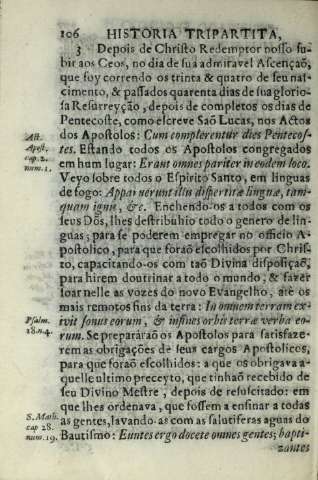 106 HISTORIA TRIPARTITA,
3 Depois de Christo Redemptor nosso su-
bir aos Ceos, no dia de sua admiravel Ascençaõ,
que foy correndo os trinta & quatro de seu nas-
cimento, & passados quarenta dias de sua glorio-
sa Resurreyção, depois de completos os dias de
Pentecoste, como escreve Saõ Lucas, nos Actos
dos Apostolos: Cum complerentur dies Pentecos-
tes. Estando todos os Apostolos congregados
em hum lugar: Erant omnes pariter in eodem loco.
Veyo sobre todos o Espirito Santo, em linguas
de fogo: Apparuerunt illis dispertitæ linguæ, tam-
quam ignis, &c. Enchendo-os a todos com os
seus Dõs, lhes destribuhio todo o genero de lin-
guas; para se poderem empregar no officio A-
postolico, para que foraõ escolhidos por Chris-
to, capacitando-os com taõ Divina disposiçaõ,
para hirem doutrinar a todo o mundo, & fazer
soar nelle as vozes do novo Evangelho, até os
mais remotos fins da terra: In omnem terram ex-
ivit sonus eorum, & in fines orbis terræ verba eo-
rum. Se prepararaõ os Apostolos para satisfaze-
rem as obrigações de seus cargos Apostolicos,
para que foraõ escolhidos: a que os obrigava a-
quelle ultimo preceyto, que tinhaõ recebido de
seu Divino Mestre, depois de resuscitado: em
que lhes ordenava, que fossem a ensinar a todas
as gentes, lavando-as com as salutiferas aguas do
Bautismo: Euntes ergo docete omnes gentes; bapti-
zantes
Act.
Apost.
cap. 2.
num. 1.
Psalm.
18. n. 4.
S. Math.
cap 28.
num. 19.